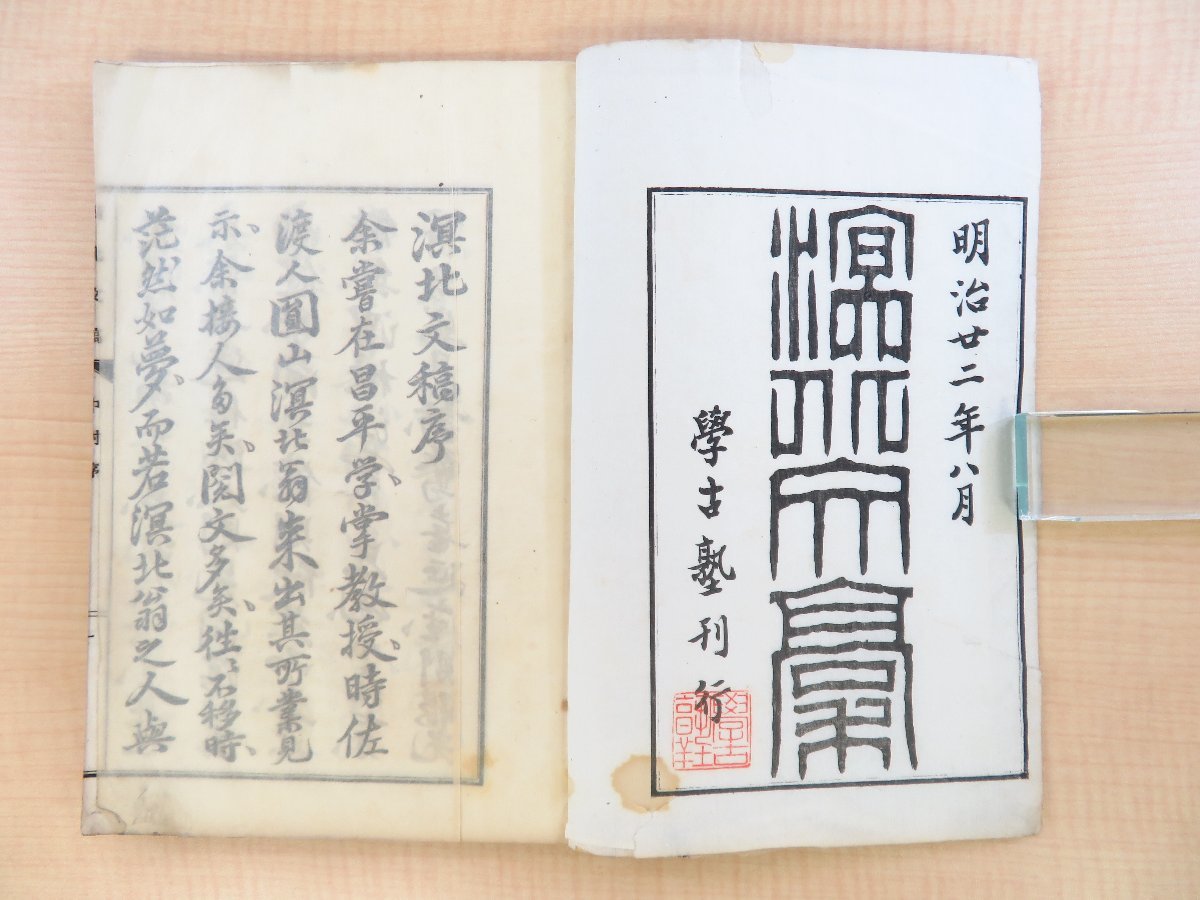 明治廿二年八月
溟北文稾
學古塾刊行
溟北文稿序
余嘗在昌平学掌教授時佐
渡人圓山溟北翁来出其所業見
示余接人多矣閲文多矣徃〻不移時
茫然如夢而若溟北翁之人與